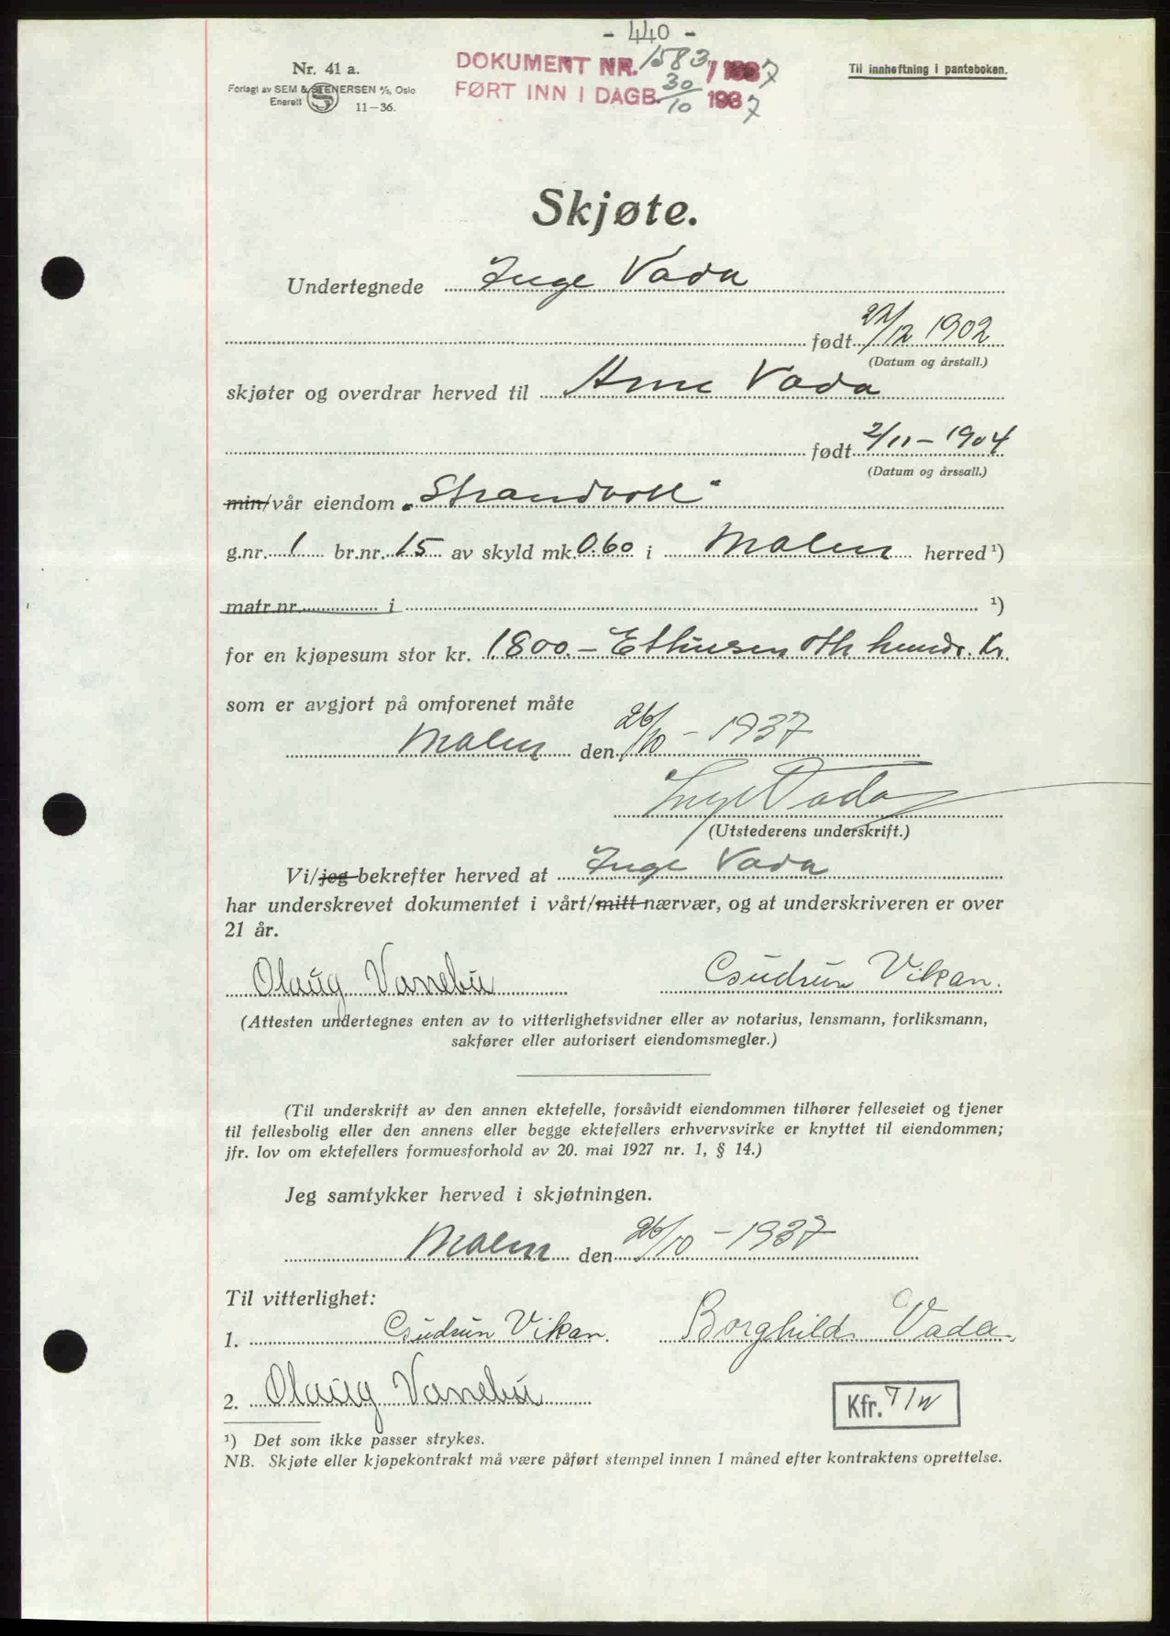 - 440 -
Nr. 41 a.
Forlagt av SEM & STENERSEN A/S, Oslo
Enerett 11-36.
DOKUMENT NR. 1583/1937
FØRT INN I DAGB. 30/10 1937
Til innheftning i panteboken.
Skjøte.
Undertegnede Inge Vada
født 22/12 1902
(Datum og årstall.)
skjøter og overdrar herved til Arne Vada
født 2/11-1904
(Datum og årssall.)
min/vår eiendom „Strandvoll"
g.nr. 1 br.nr. 15 av skyld mk. 0.60 i Malm herred ¹)
matr.nr. i ¹)
for en kjøpesum stor kr. 1800.- Ethusen otte hundr. Kr.
som er avgjort på omforenet måte
Malm den 26/10 - 1937
Inge Vada
(Utstederens underskrift.)
Vi/jeg bekrefter herved at Inge Vada
har underskrevet dokumentet i vårt/mitt nærvær, og at underskriveren er over
21 år.
Olaug Vannebu Gudrun Vikan.
(Attesten undertegnes enten av to vitterlighetsvidner eller av notarius, lensmann, forliksmann,
sakfører eller autorisert eiendomsmegler.)
(Til underskrift av den annen ektefelle, forsåvidt eiendommen tilhører felleseiet og tjener
til fellesbolig eller den annens eller begge ektefellers erhvervsvirke er knyttet til eiendommen;
jfr. lov om ektefellers formuesforhold av 20. mai 1927 nr. 1, § 14.)
Jeg samtykker herved i skjøtningen.
Malm den 26/10 - 1937
Til vitterlighet:
1. Gudrun Vikan. Borghild Vada.
2. Olaug Vannebu
Kfr.
¹) Det som ikke passer strykes.
NB. Skjøte eller kjøpekontrakt må være påført stempel innen 1 måned efter kontraktens oprettelse.